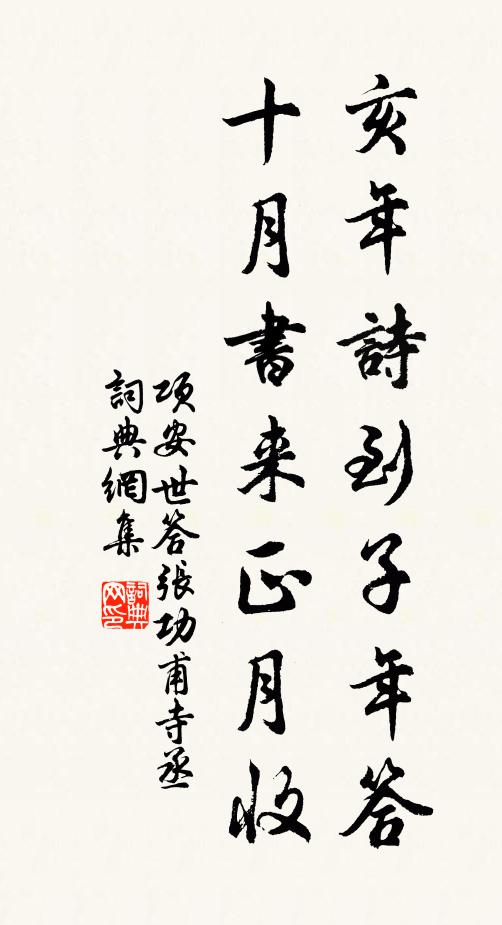 亥年詩到子年答
十月書来正月收
項安世答張功甫寺丞
詞典網集
詞典
网印